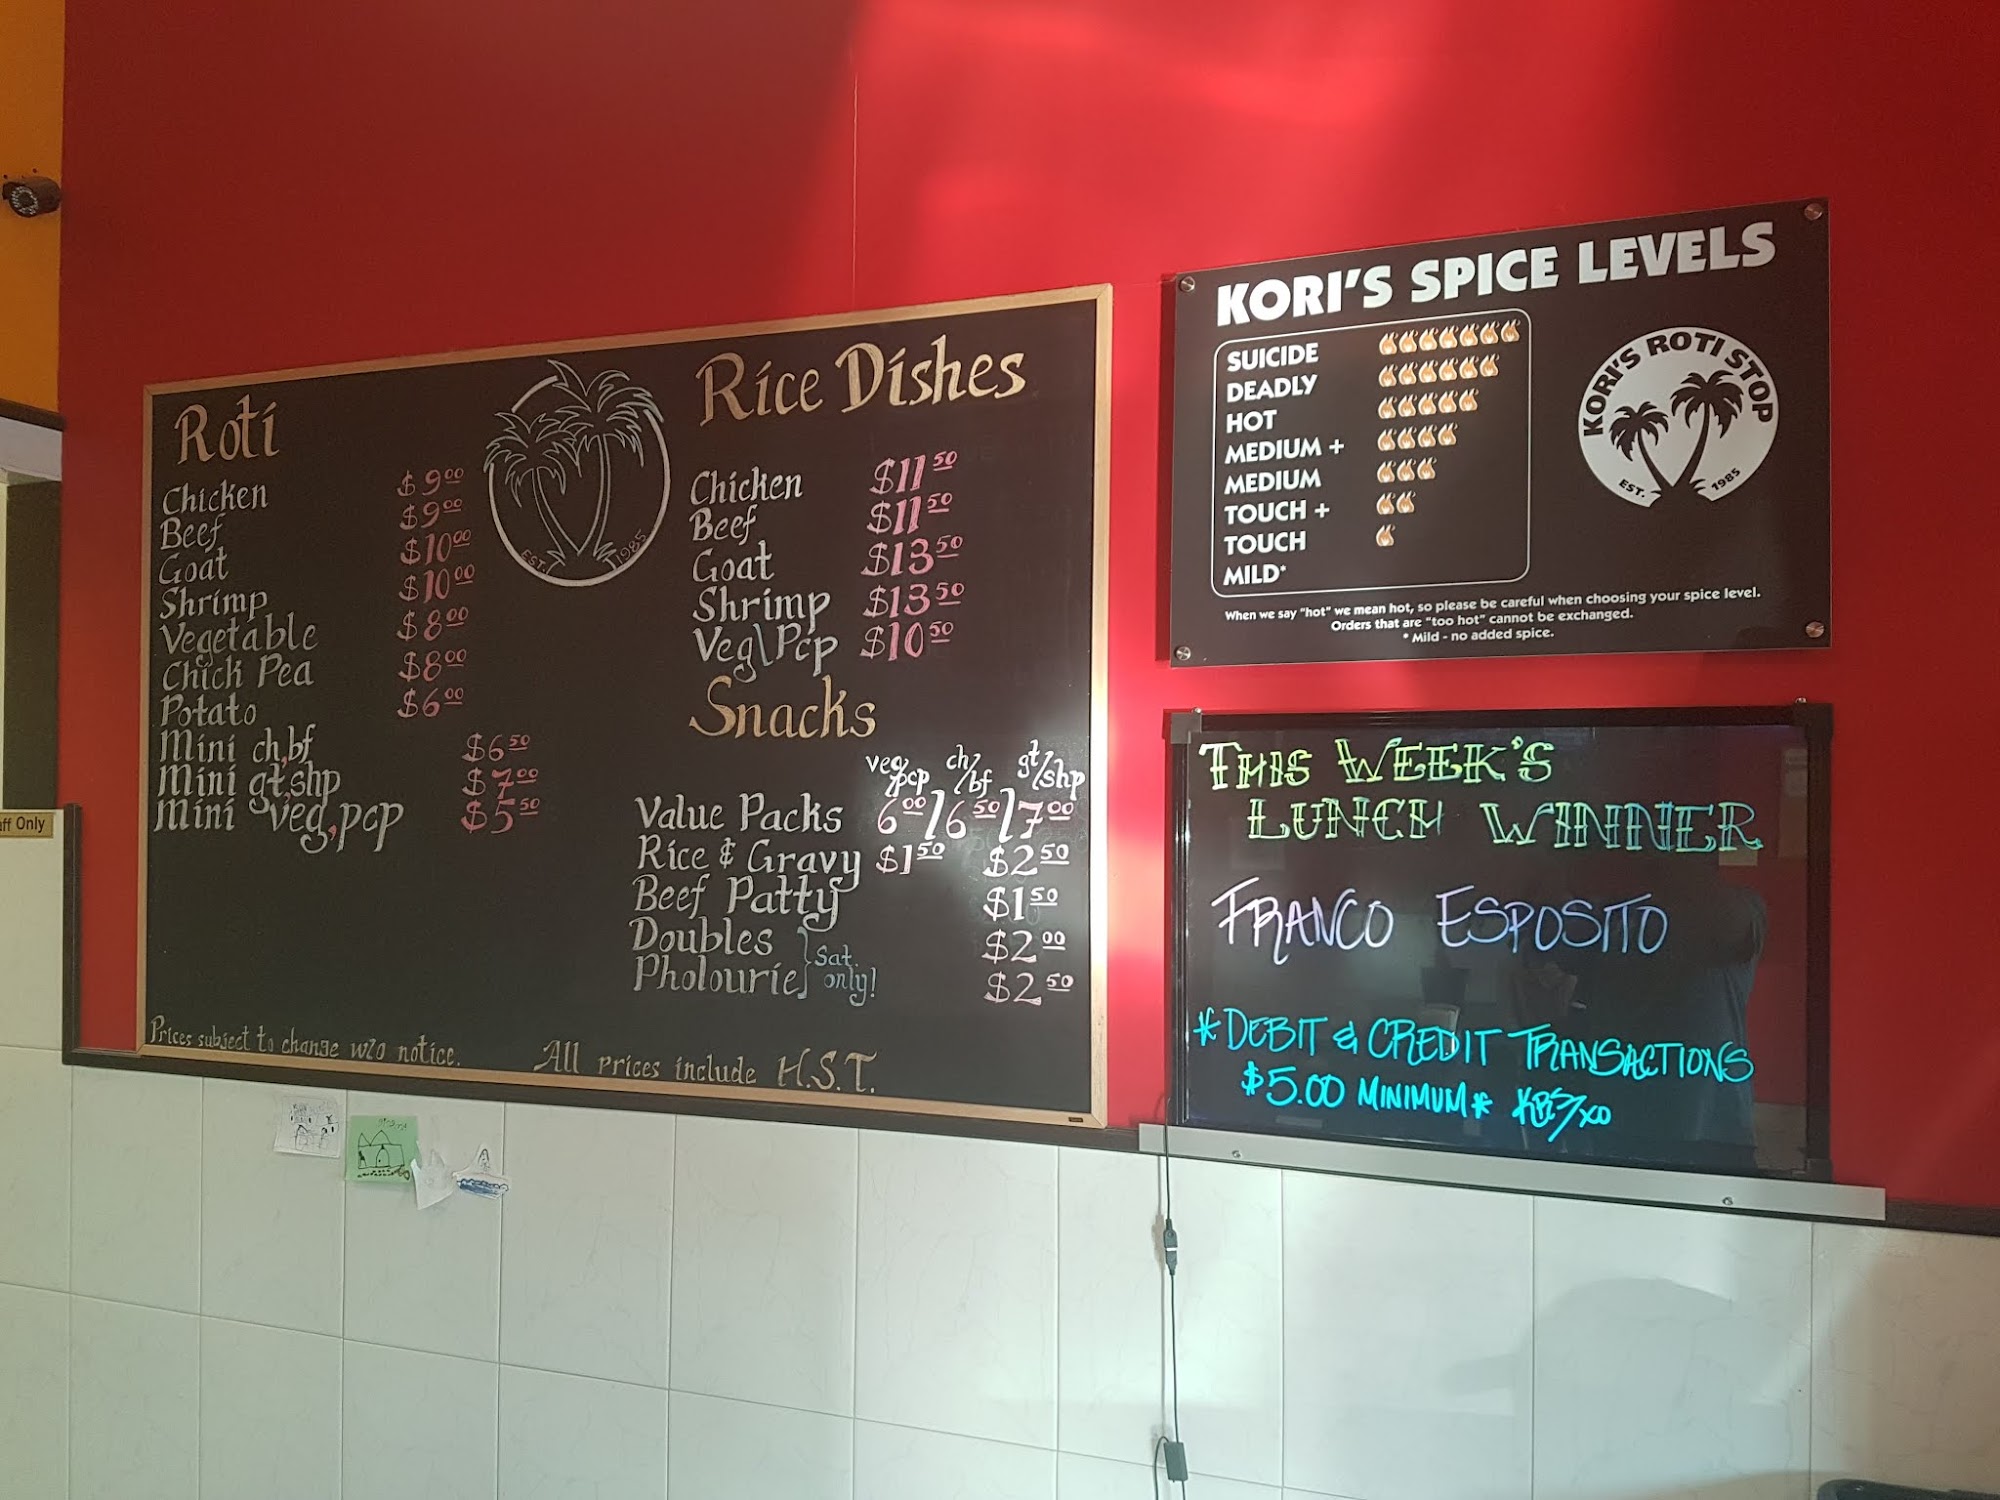 Roti
Chicken $9.00
Beef $9.00
Goat $10.00
Shrimp $10.00
Vegetable $8.00
Chick Pea $8.00
Potato $6.00
Mini ch,bf $6.50
Mini gt,shp $7.00
Mini veg,pcp $5.50
EST. 1985
Rice Dishes
Chicken $11.50
Beef $11.50
Goat $13.50
Shrimp $13.50
Veg\Pcp $10.50
Snacks
veg/pcp ch/bf gt/shp
Value Packs 6.00/6.50/7.00
Rice & Gravy $1.50 $2.50
Beef Patty $1.50
Doubles $2.00
Pholourie $2.50
Sat.
only!
Prices subject to change w/o notice.
All prices include H.S.T.
KORI'S SPICE LEVELS
SUICIDE
DEADLY
HOT
MEDIUM +
MEDIUM
TOUCH +
TOUCH
MILD*
KORI'S ROTI STOP
EST. 1985
When we say "hot" we mean hot, so please be careful when choosing your spice level.
Orders that are "too hot" cannot be exchanged.
* Mild - no added spice.
THIS WEEK'S
LUNCH WINNER
FRANCO ESPOSITO
*DEBIT & CREDIT TRANSACTIONS
$5.00 MINIMUM*
Only